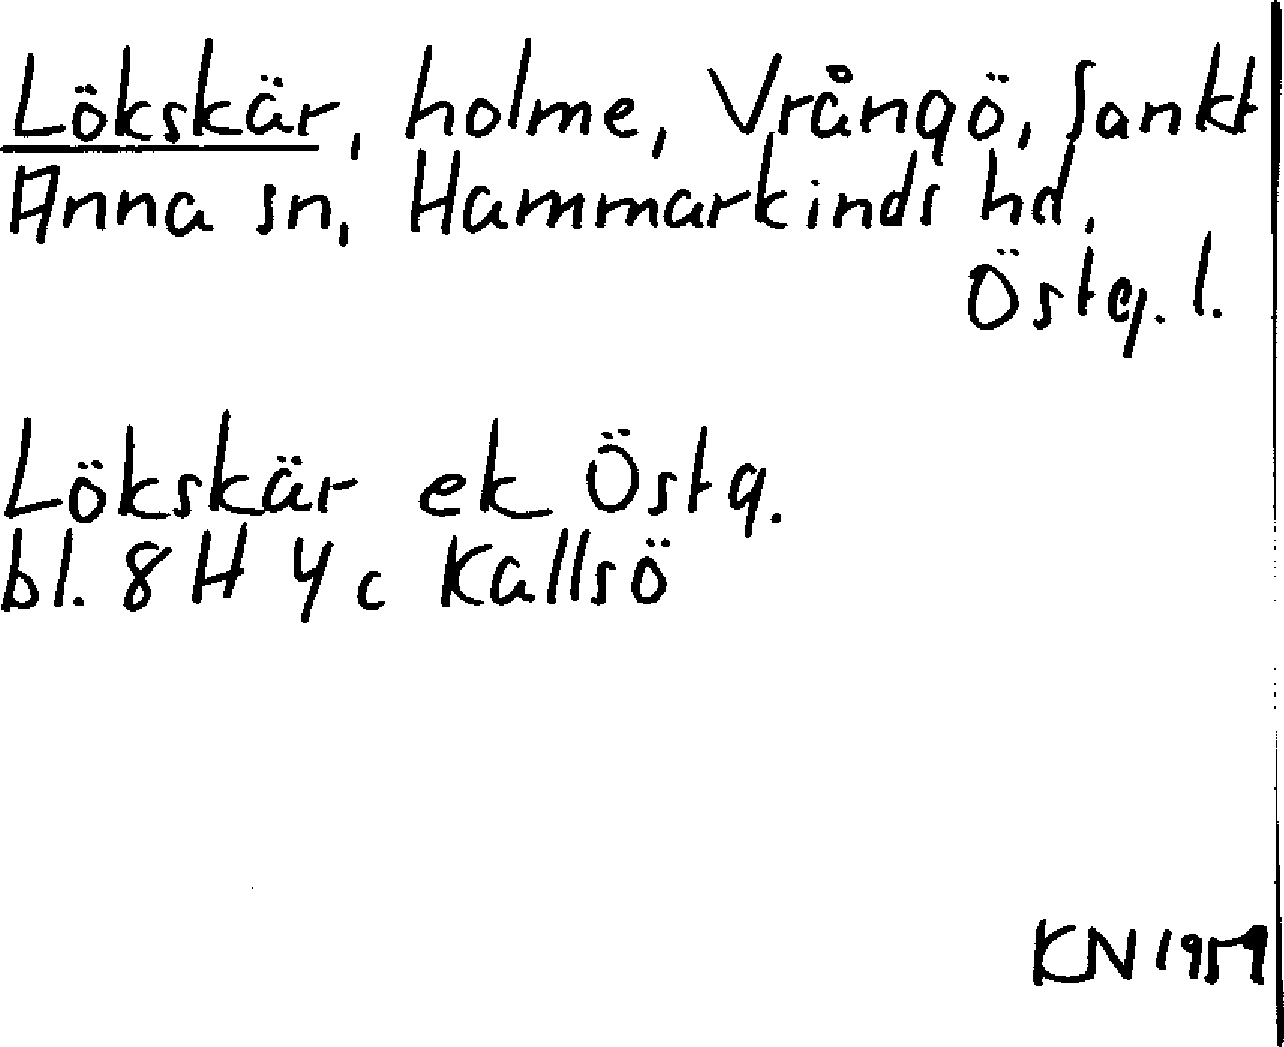 Lökskär, holme, Vrångö, Sankt
Anna sn, Hammarkinds hd.
Östg. l.
Lökskär ek Östg.
bl. 8H 4c Kallsö
KN 1959